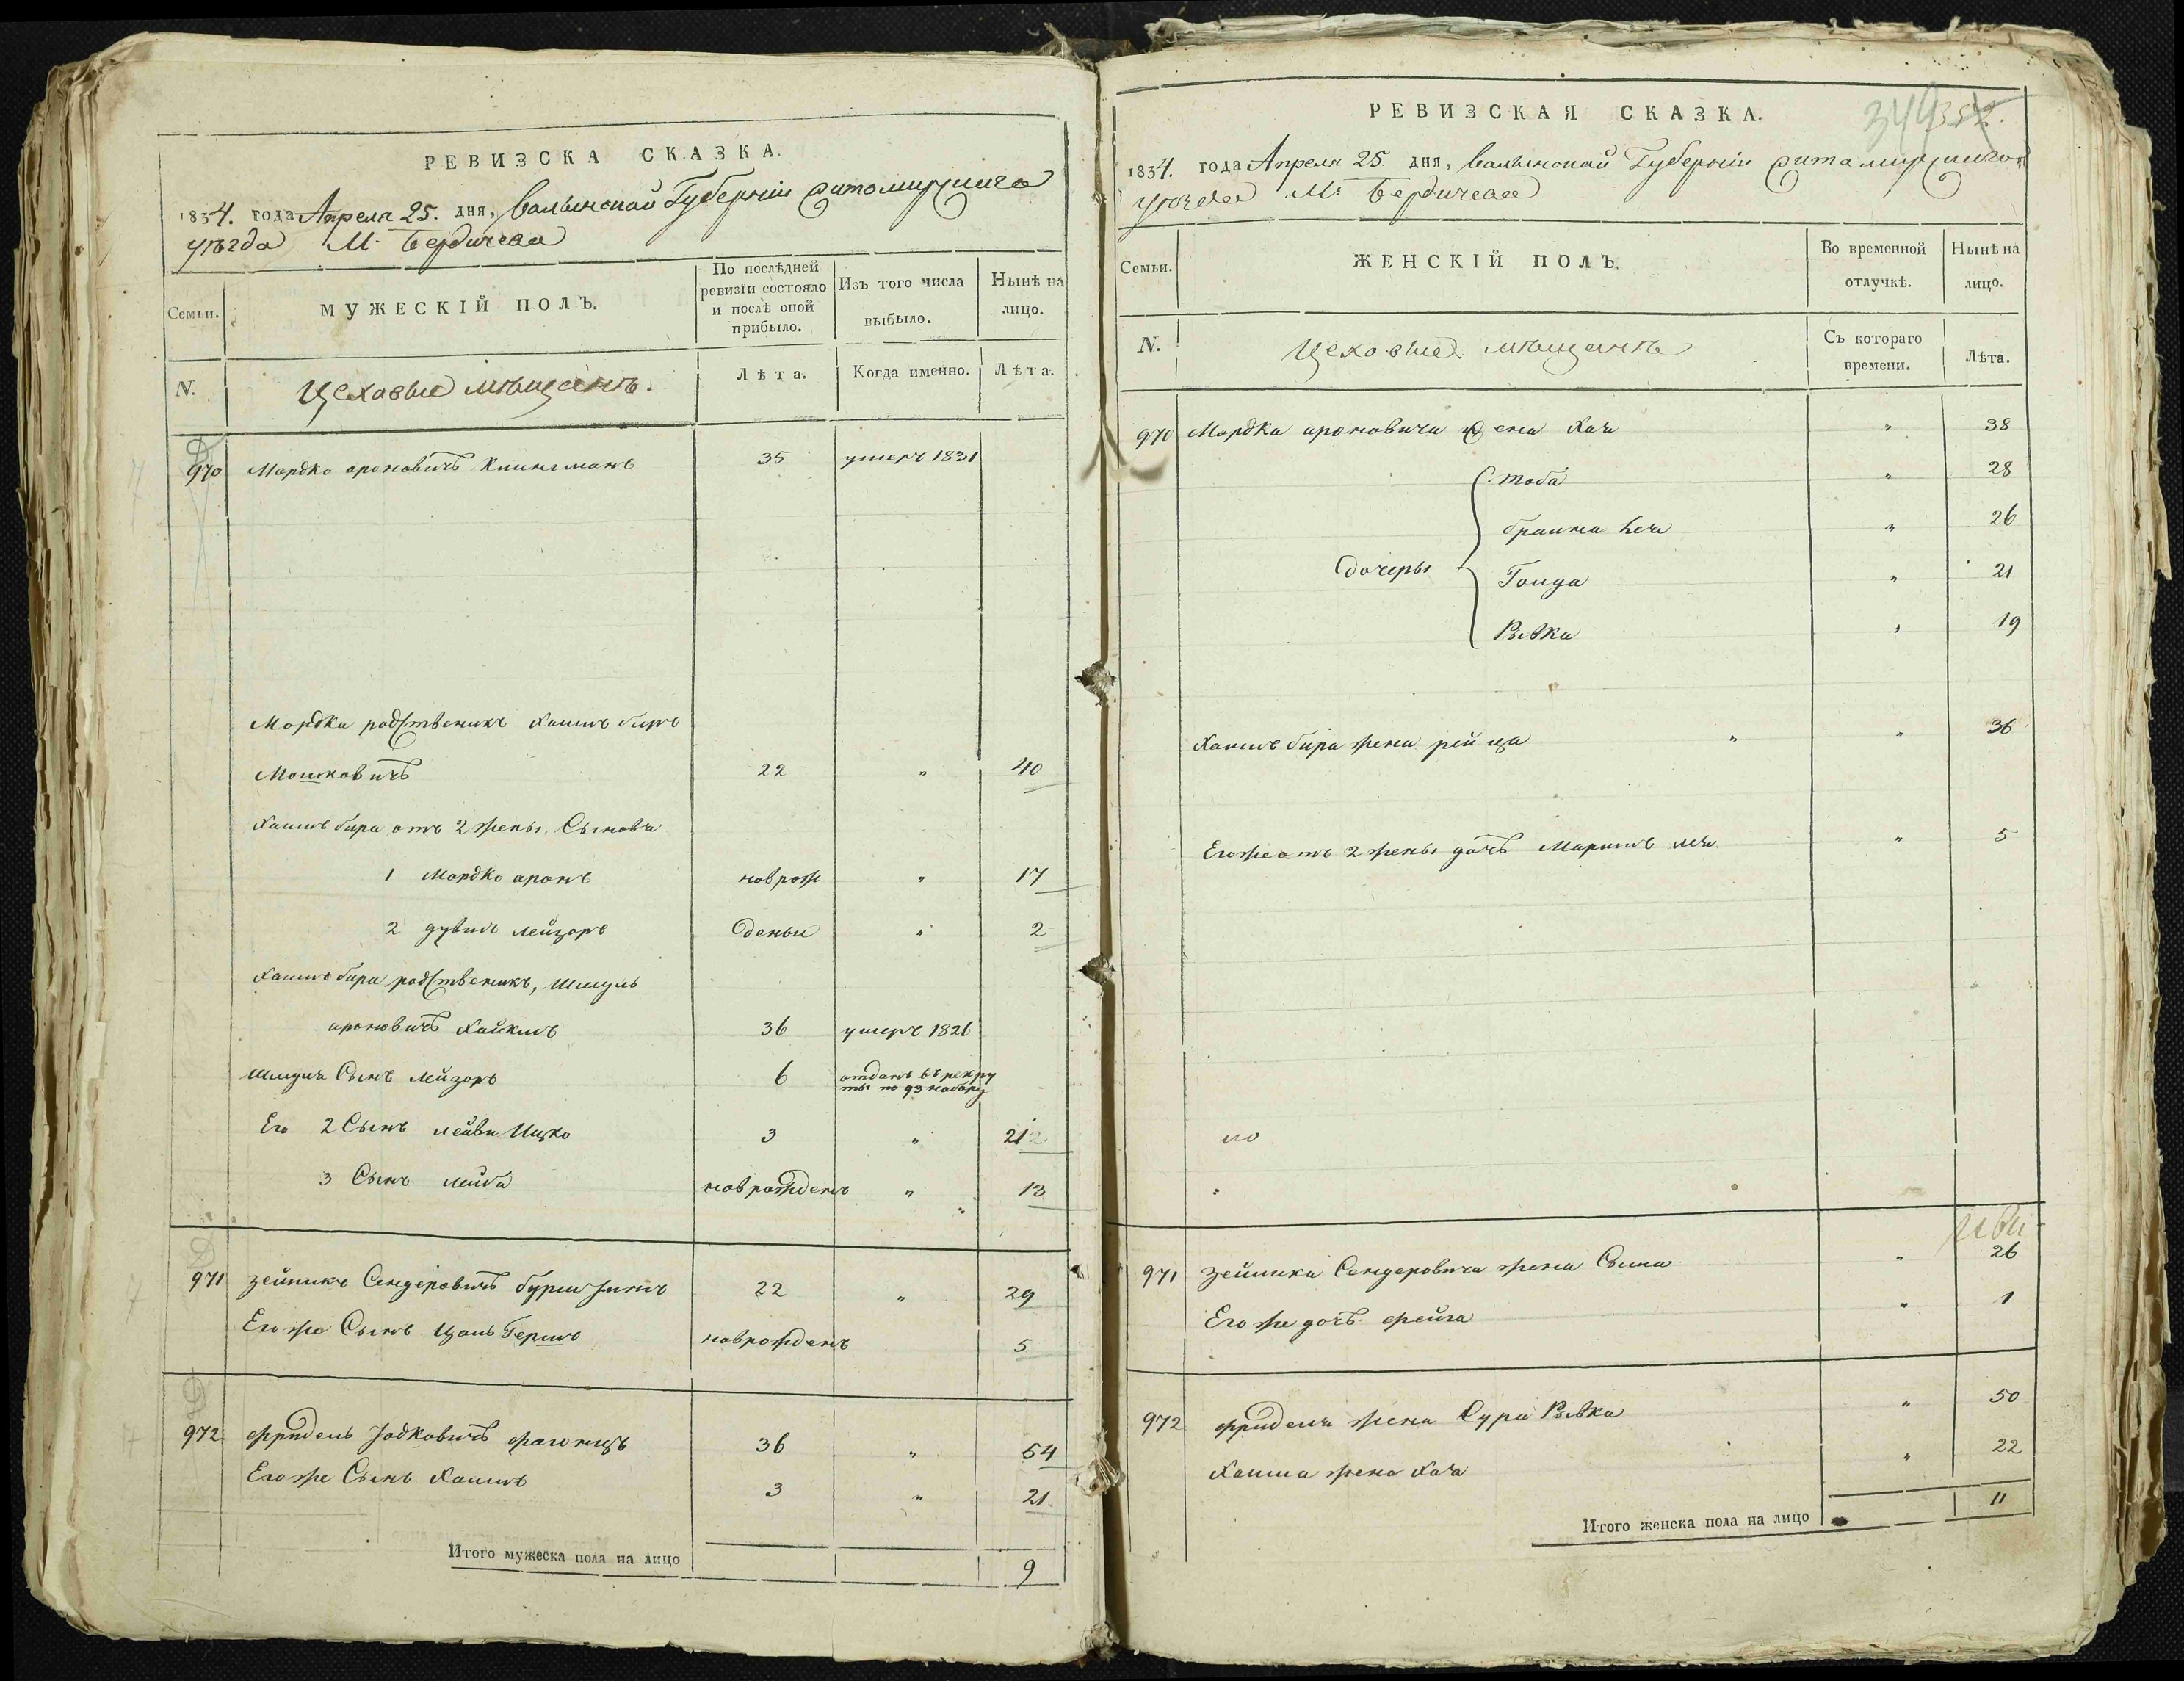 РЕВИЗСКА СКАЗКА.
1834. года Апреля 25. дня, Волынской Губерніи Житомирскаго
уѣзда М. Бердичева
Семьи.
МУЖЕСКІЙ ПОЛЪ.
По послѣдней ревизіи состояло и послѣ оной прибыло.
Изъ того числа выбыло.
Нынѣ на лицо.
N.
Цеховые мѣщанъ.
Лѣта.
Когда именно.
Лѣта.
970 Мордко ароновичъ 35 умеръ 1831
Мордка родственикъ Хаимъ биръ
Мошковичъ 22 " 40
Хаимъ бира отъ 2 жены Сыновя
1 Мордко аронъ новрож " 17
2 дувидъ лейзоръ дены " 2
Хаимъ бира родственикъ, Шмуль
ароновичъ Хайкимъ 36 умеръ 1826
Шмуля Сынъ лейзоръ 6 отданъ въ рекру
ты по 93 набору
Его 2 Сынъ лейви Ицко 3 " 21
3 Сынъ лейба новрожденъ " 13
971 зейликъ Сендеровичъ 22 " 29
Его же Сынъ Герш новрожденъ 5
972 фридель Іодковичъ 36 " 54
Его же Сынъ Хаимъ 3 " 21
Итого мужеска пола на лицо 9
РЕВИЗСКАЯ СКАЗКА.
344
1834. года Апреля 25 дня, Волынской Губерніи Житомирскаго
уѣзда М. Бердичева
Семьи.
ЖЕНСКІЙ ПОЛЪ.
Во временной отлучкѣ.
Нынѣ на лицо.
N.
Цеховые мѣщанъ
Съ котораго времени.
Лѣта.
970 Мордка ароновича жена Хая " 38
дочеры
тоба " 28
браина " 26
Голда " 21
Рывка " 19
Хаимъ бира жена рейца " " 36
Его же отъ 2 жены дочъ Маримъ лея " 5
971 зейлика Сендеровича жена Сима " 26
Его же дочъ фейга " 1
972 фриделя жена Сура Рывка " 50
Хаима жена Хая " 22
Итого женска пола на лицо 11